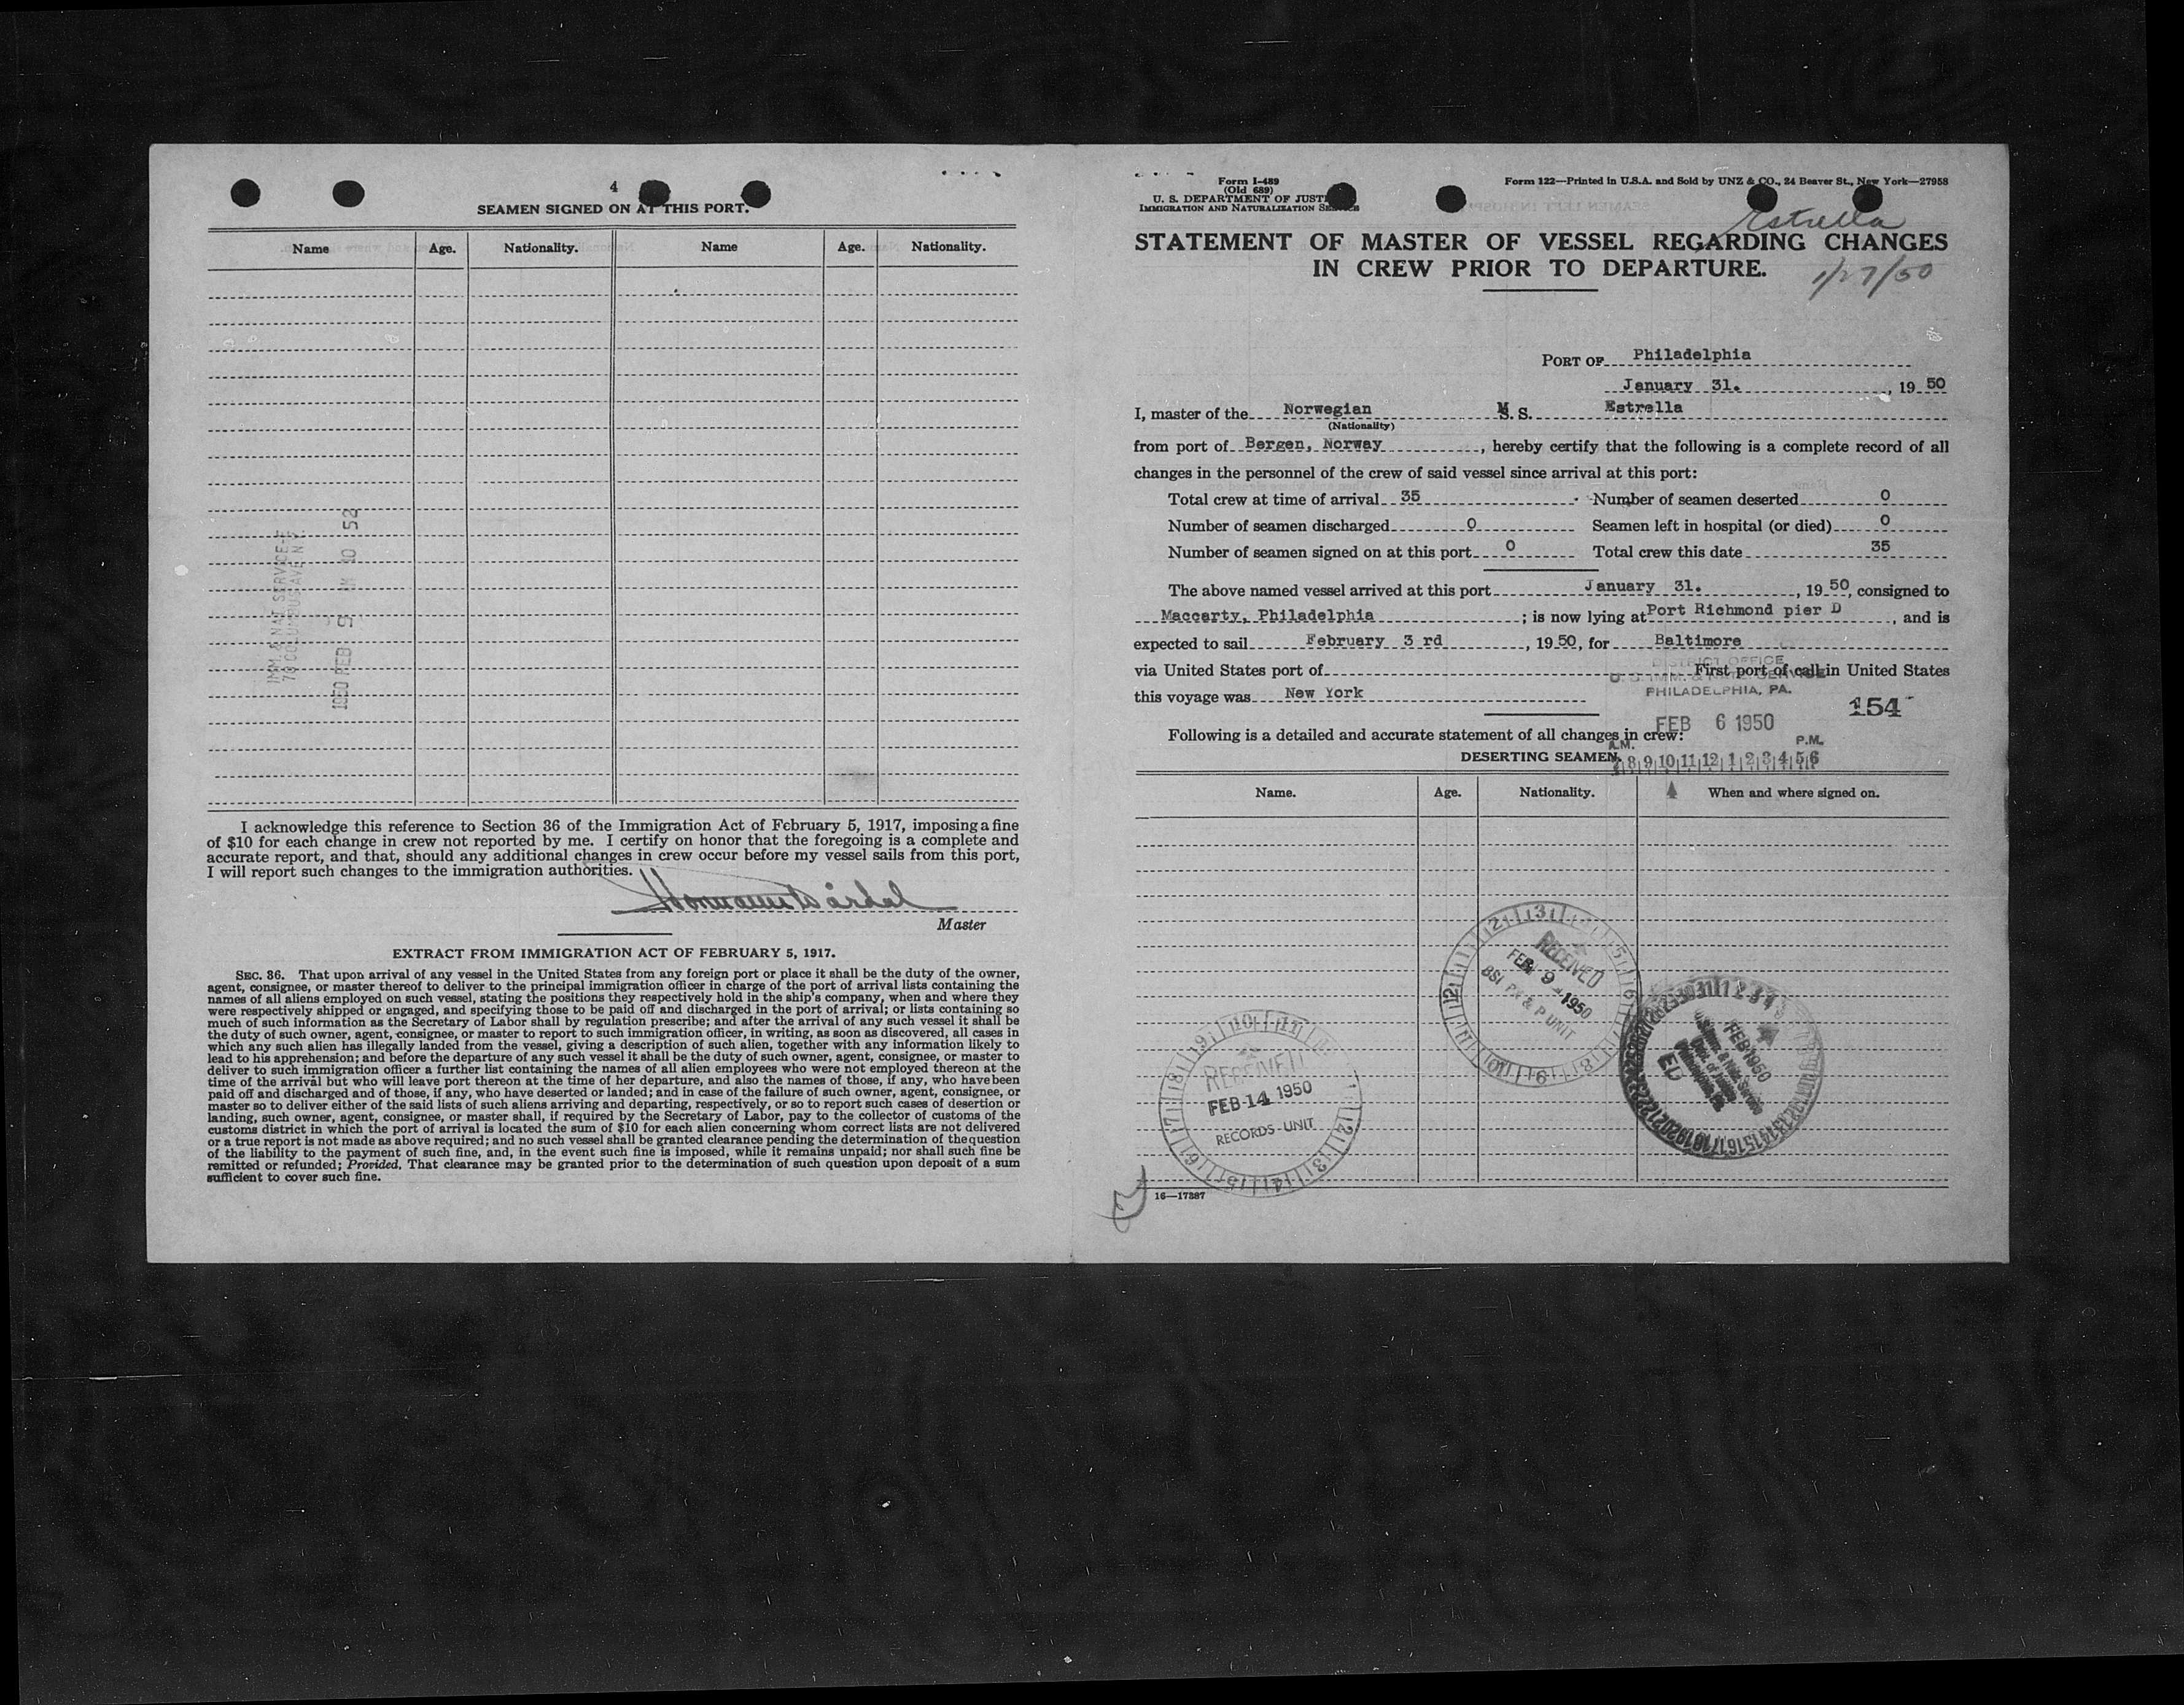 4
SEAMEN SIGNED ON AT THIS PORT.
Name Age. Nationality. Name Age. Nationality.
IMM. & NAT. SERVICE-
70 COLUMBUS AVE. N.Y.
1950 FEB 9 AM 10 52
I acknowledge this reference to Section 36 of the Immigration Act of February 5, 1917, imposing a fine
of $10 for each change in crew not reported by me. I certify on honor that the foregoing is a complete and
accurate report, and that, should any additional changes in crew occur before my vessel sails from this port,
I will report such changes to the immigration authorities.
Master
EXTRACT FROM IMMIGRATION ACT OF FEBRUARY 5, 1917.
SEC. 36. That upon arrival of any vessel in the United States from any foreign port or place it shall be the duty of the owner,
agent, consignee, or master thereof to deliver to the principal immigration officer in charge of the port of arrival lists containing the
names of all aliens employed on such vessel, stating the positions they respectively hold in the ship's company, when and where they
were respectively shipped or engaged, and specifying those to be paid off and discharged in the port of arrival; or lists containing so
much of such information as the Secretary of Labor shall by regulation prescribe; and after the arrival of any such vessel it shall be
the duty of such owner, agent, consignee, or master to report to such immigration officer, in writing, as soon as discovered, all cases in
which any such alien has illegally landed from the vessel, giving a description of such alien, together with any information likely to
lead to his apprehension; and before the departure of any such vessel it shall be the duty of such owner, agent, consignee, or master to
deliver to such immigration officer a further list containing the names of all alien employees who were not employed thereon at the
time of the arrival but who will leave port thereon at the time of her departure, and also the names of those, if any, who have been
paid off and discharged and of those, if any, who have deserted or landed; and in case of the failure of such owner, agent, consignee, or
master so to deliver either of the said lists of such aliens arriving and departing, respectively, or so to report such cases of desertion or
landing, such owner, agent, consignee, or master shall, if required by the Secretary of Labor, pay to the collector of customs of the
customs district in which the port of arrival is located the sum of $10 for each alien concerning whom correct lists are not delivered
or a true report is not made as above required; and no such vessel shall be granted clearance pending the determination of the question
of the liability to the payment of such fine, and, in the event such fine is imposed, while it remains unpaid; nor shall such fine be
remitted or refunded; Provided, That clearance may be granted prior to the determination of such question upon deposit of a sum
sufficient to cover such fine.
Form I-489
(Old 689)
U. S. DEPARTMENT OF JUSTICE
IMMIGRATION AND NATURALIZATION SERVICE
Form 122—Printed in U.S.A. and Sold by UNZ & CO., 24 Beaver St., New York—27958
Estrella
STATEMENT OF MASTER OF VESSEL REGARDING CHANGES
IN CREW PRIOR TO DEPARTURE.
1/27/50
PORT OF Philadelphia
January 31. , 19 50
I, master of the Norwegian M S. S. Estrella
(Nationality)
from port of Bergen, Norway , hereby certify that the following is a complete record of all
changes in the personnel of the crew of said vessel since arrival at this port:
Total crew at time of arrival 35 Number of seamen deserted 0
Number of seamen discharged 0 Seamen left in hospital (or died) 0
Number of seamen signed on at this port 0 Total crew this date 35
The above named vessel arrived at this port January 31. , 19 50, consigned to
Maccarty, Philadelphia ; is now lying at Port Richmond pier D , and is
expected to sail February 3 rd , 19 50, for Baltimore
via United States port of First port of call in United States
this voyage was New York
DISTRICT OFFICE
U. S. IMM. & NAT. SERVICE
PHILADELPHIA, PA.
154
FEB 6 1950
Following is a detailed and accurate statement of all changes in crew:
A.M. P.M.
DESERTING SEAMEN.
7 8 9 10 11 12 1 2 3 4 5 6
Name. Age. Nationality. When and where signed on.
RECEIVED
FEB 9 1950
BSI PX & P UNIT
FEB 1950
U.S. Imm. & Natz. Service
Dept. of Justice
Philadelphia, Pa.
RECEIVED
FEB 14 1950
RECORDS UNIT
16—17387